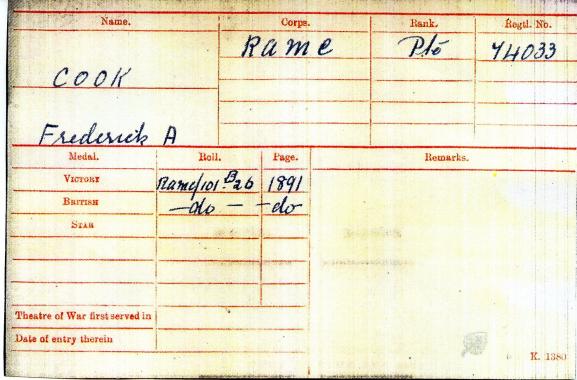 Name. Corps. Rank. Regtl. No.
RAMC Pte 74033
COOK
Frederick A
Medal. Roll. Page. Remarks.
VICTORY RAMC/101 B26 1891
BRITISH —do— —do
STAR
Theatre of War first served in
Date of entry therein
K. 1380